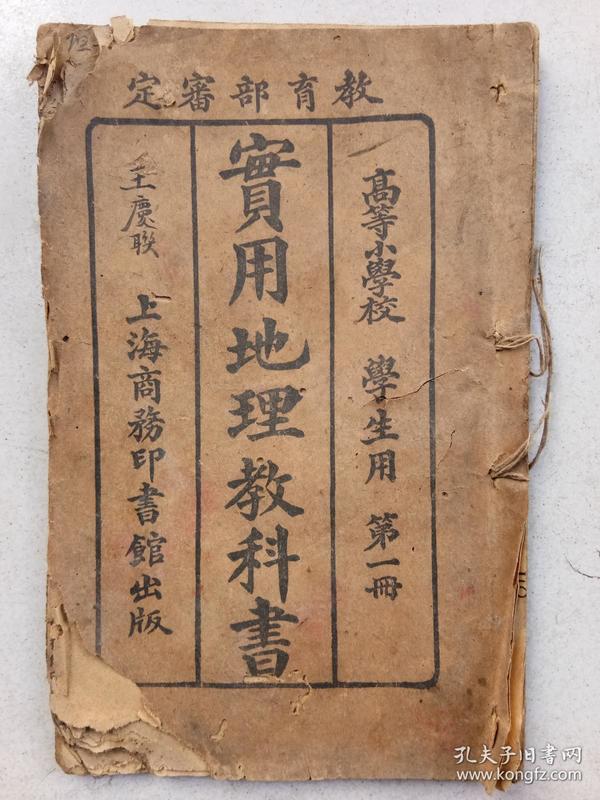 教育部審定
高等小學校 學生用 第一冊
實用地理教科書
王慶聯
上海商務印書館出版
孔夫子旧书网
www.kongfz.com